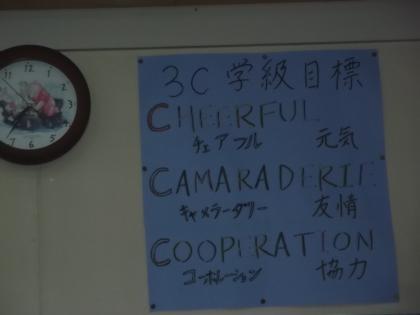 3C 学級目標
CHEERFUL
チェアフル 元気
CAMARADERIE
キャメラーダリー 友情
COOPERATION
コーポレーション 協力